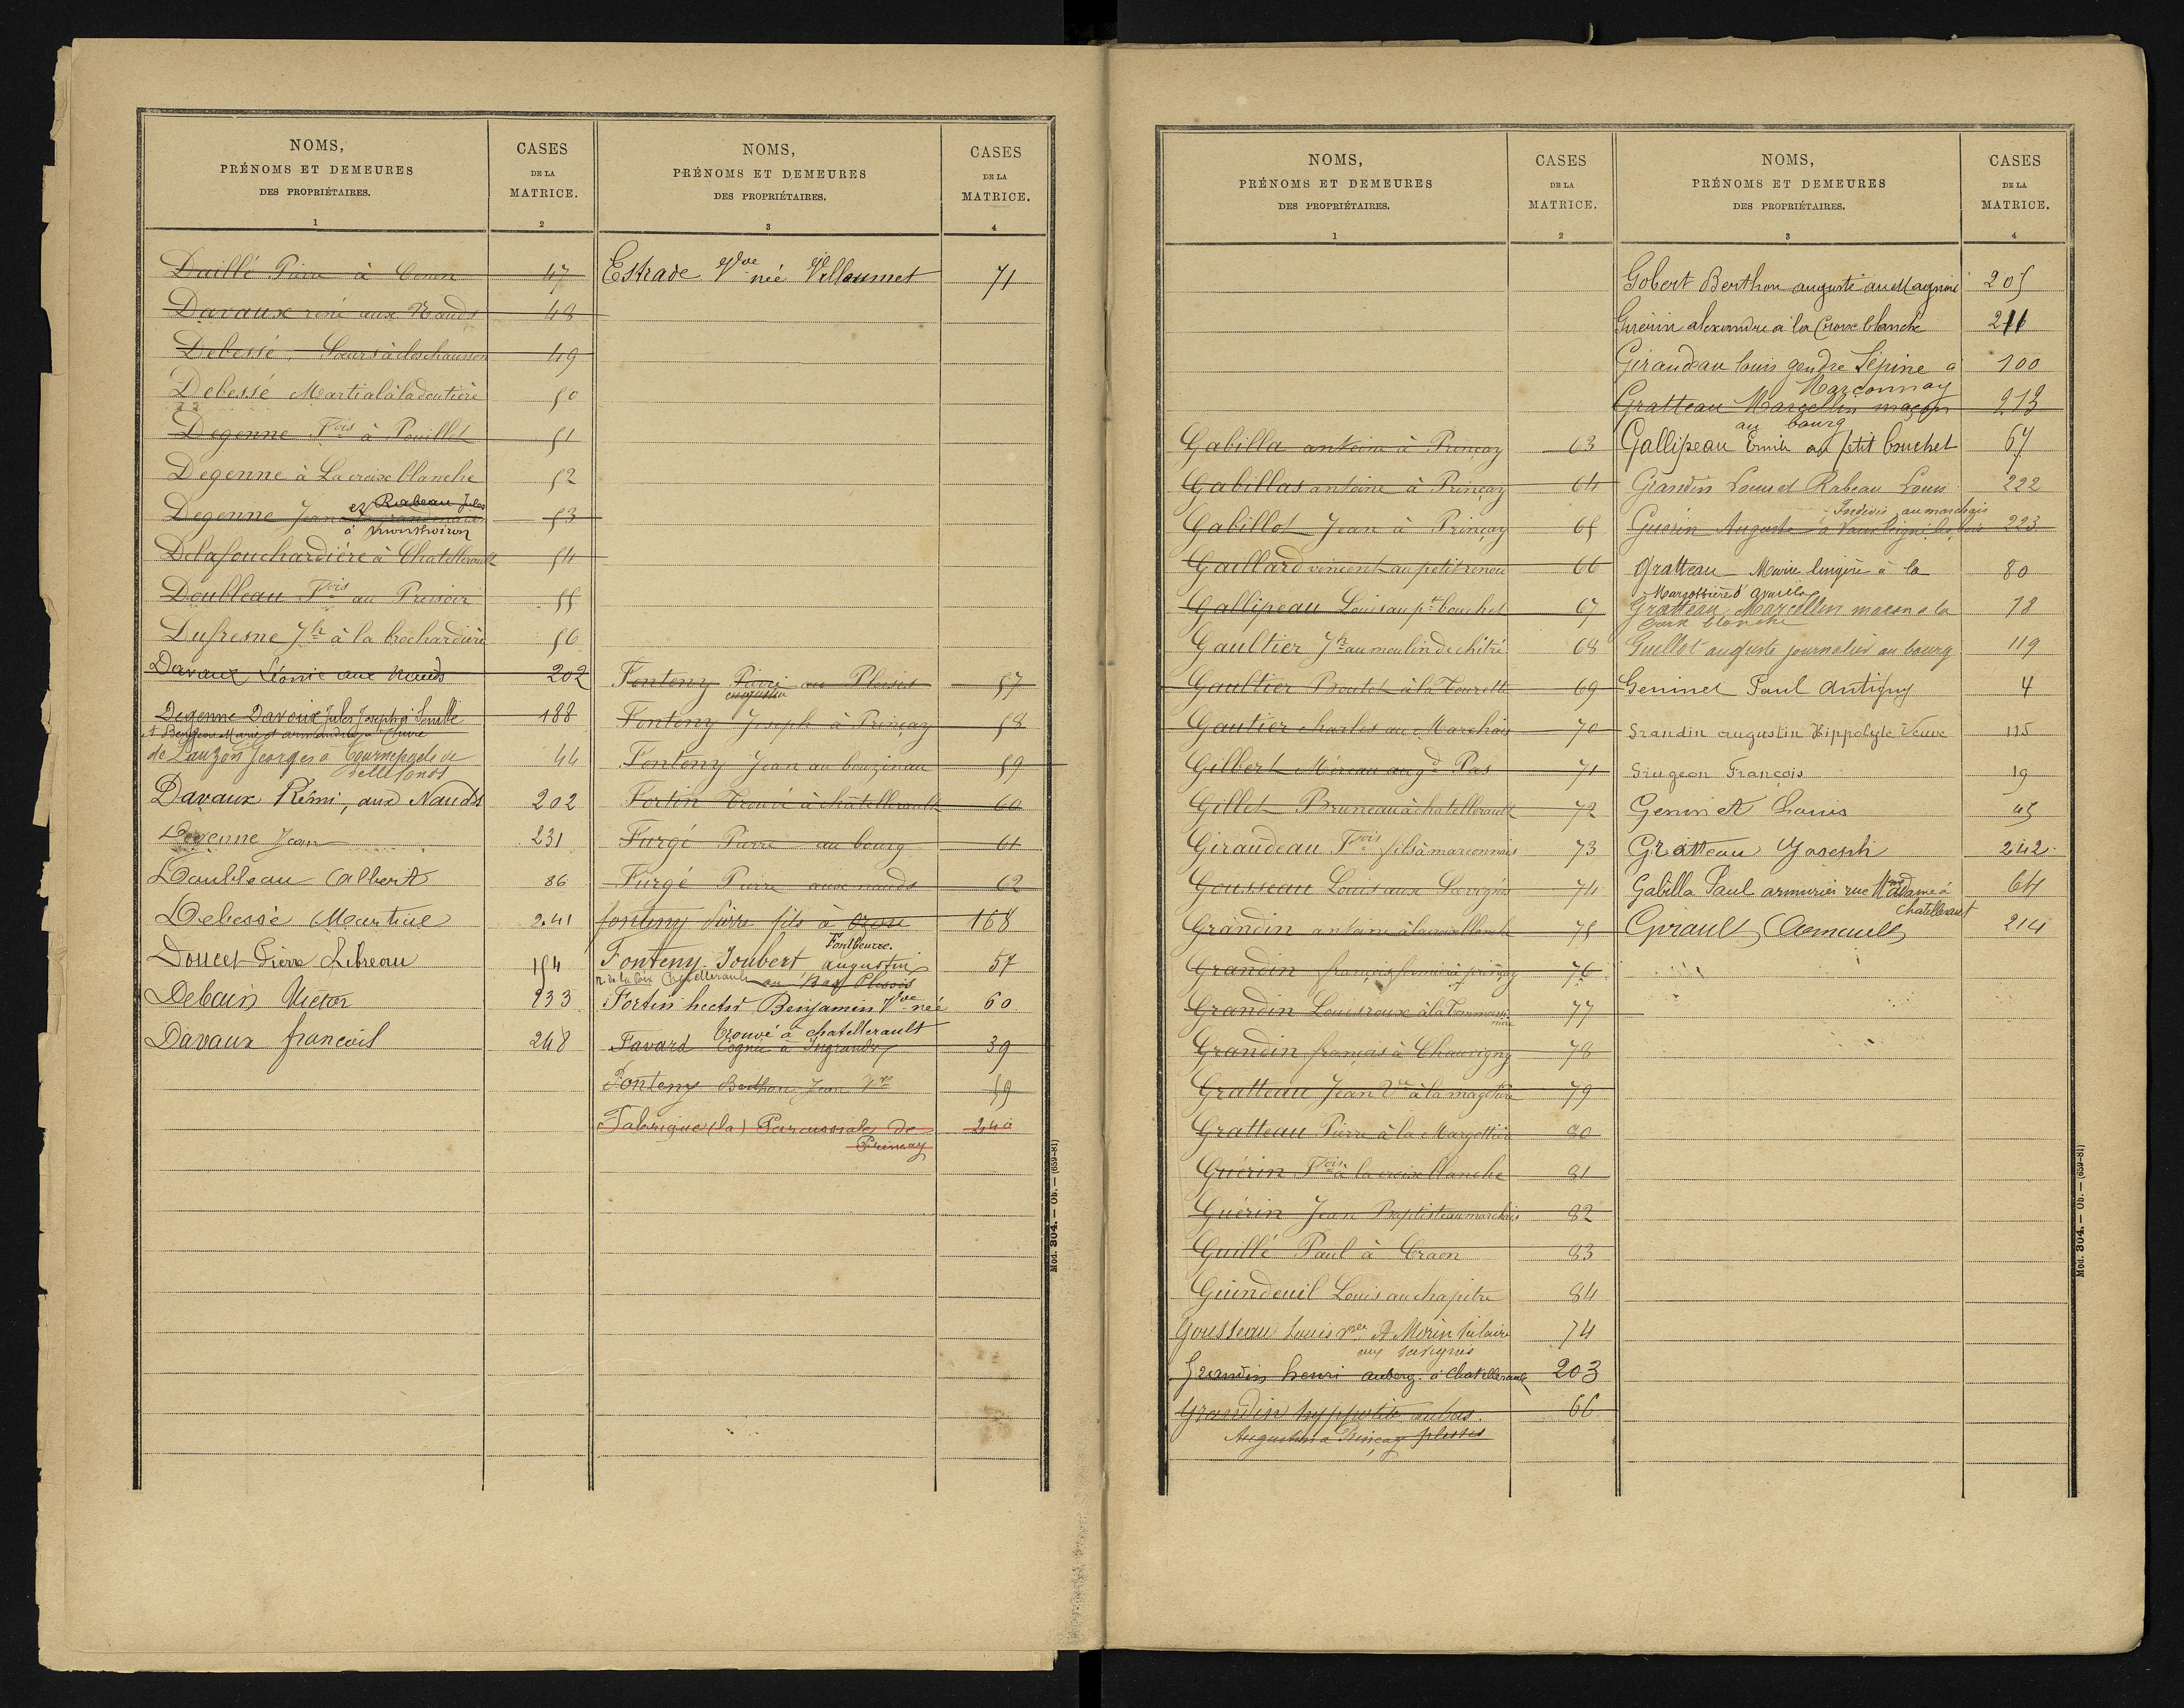 NOMS,
PRÉNOMS ET DEMEURES
DES PROPRIÉTAIRES.
1
CASES
DE LA
MATRICE.
2
Daillé Pierre à Cenon 47
Davaux réné aux Nauds 48
Debessé Sœurs à clos chausson 49
Debessé Martial à la doutière 50
Degenne Fois à Pouillet 51
Degenne à La croix blanche 52
et Rabeau Jules
Degenne Jean 53
à monthoiron
Delafouchardière à Chatellerault 54
Doubleau Fois au Pressoir 55
Dufresne Jh à la brochardière 56
Davaux Léonie aux Nauds 202
Degenne Davaux Jules Joseph 188
de Lauzon Georges à 44
Bellefonds
Davaux Rémi, aux Nauds 202
Degenne Jean 231
Doubleau Albert 86
Debessé Martial 241
Doucet Pierre Libreau 154
Debain Victor 233
Davaux françois 248
NOMS,
PRÉNOMS ET DEMEURES
DES PROPRIÉTAIRES.
3
CASES
DE LA
MATRICE.
4
Estrade Vve née Villaumet 71
Fonteny Pierre au Plessis 57
augustin
Fonteny Joseph à Prinçay 58
Fonteny Jean au bouzinau 59
Fortin Trouvé à châtellerault 60
Furgé Pierre au bourg 61
Furgé Pierre aux nauds 62
fonteny Pierre fils à 168
Fonteny-Joubert augustin 57
au Bas Plessis
Fortin hector Benjamin Vve née 60
Trouvé à chatellerault
Favard Cognée à Ingrandes 39
Fonteny Berthon Jean Vve 59
Fabrique (la) Paroissiale de 240
Prinçay
Mod. 304. — Ob. — (659-81)
NOMS,
PRÉNOMS ET DEMEURES
DES PROPRIÉTAIRES.
1
CASES
DE LA
MATRICE.
2
Gabilla antoine à Prinçay 63
Gabillas antoine à Prinçay 64
Gabillot Jean à Prinçay 65
Gaillard vincent au petit renou 66
Gallipeau Louis au pt bouchet 67
Gaultier Jh au moulin de chitré 68
Gaultier Boutet à la Tourette 69
Gautier charles au Marchais 70
Gilbert Méreau au gd Pas 71
Gillet Bruneau à chatellerault 72
Giraudeau Fois fils à marconnais 73
Gousseau Louis aux Savignis 74
Grandin antoine à la croix blanche 75
Grandin françois fermier à prinçay 76
Grandin Louis roux à la Tommasi 77
nière
Grandin françois à Chauvigny 78
Gratteau Jean Vve à la magotière 79
Gratteau Pierre à la Margottière 80
Guérin Fois à la croix blanche 81
Guérin Jean Baptiste au marchais 82
Guillé Paul à Craon 83
Guindeuil Louis au chapitre 84
Gousseau Louis Morin hilaire 74
aux savignis
Grandin henri auberg. à Chatellerault 203
Grandin hyppolite au bas 66
Augustin à Prinçay plessis
NOMS,
PRÉNOMS ET DEMEURES
DES PROPRIÉTAIRES.
3
CASES
DE LA
MATRICE.
4
Gobert Berthon auguste au Magnou 205
Guérin alexandre à la Croix blanche 216
Giraudeau louis gendre Lépine à 100
Marconnay
Gratteau Marcellin maçon 213
au bourg
Gallipeau Emile au petit bouchet 67
Grandin Louis et Rabeau Louis 222
Indivis au marchais
Guérin Auguste à Vaux 223
Gratteau Marie lingère à la 80
Margottière d'availles
Gratteau Marcellin macon à la 78
blanche
Guillot auguste journalier au bourg 119
Geninet Paul Antigny 4
Grandin augustin Hippolyte Veuve 115
Giugeon François 19
Geninet Louis 45
Gratteau Joseph 242
Gabilla Paul armurier rue Nve Madame à 64
Chatellerault
Girault 214
Mod. 304. — Ob. — (659-81)